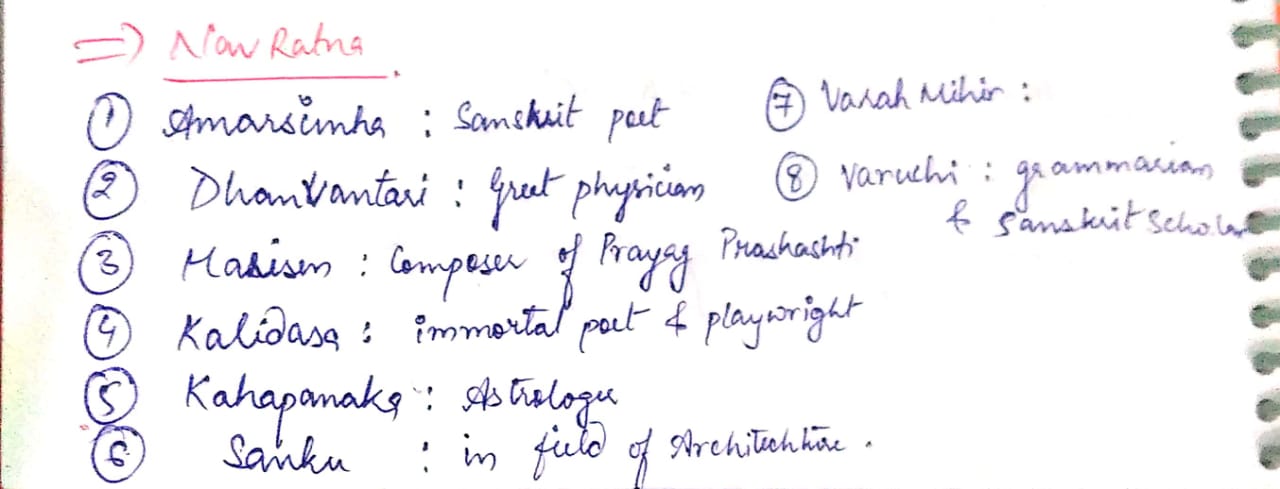 => Nav Ratna.
① Amarsimha : Sanskrit poet
② Dhanvantari : Great physician
③ Harisen : Composer of Prayag Prashashti
④ Kalidasa : immortal poet & playwright
⑤ Kahapanaka : Astrologer
⑥ Sanku : in field of Architechture.
⑦ Varah Mihir :
⑧ Varuchi : grammarian
& Sanskrit Scholar